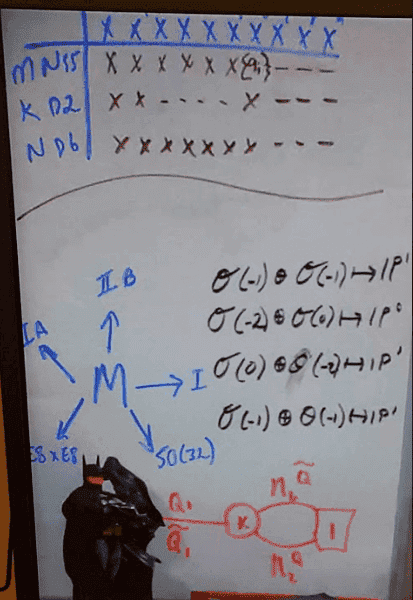 X X X X X X X X X X
M NS5 X X X X X X {a_i} - - -
K D2 X X - - - - X - - -
N D6 X X X X X X X - - -
IIB
IA
M → I
E8xE8
SO(32)
O(-1) ⊕ O(-1) ↦ IP¹
O(-2) ⊕ O(0) ↦ IP¹
O(0) ⊕ O(-2) ↦ IP¹
O(-1) ⊕ O(-1) ↦ IP¹
Q̃
Q₁
K
1
Q̃₁